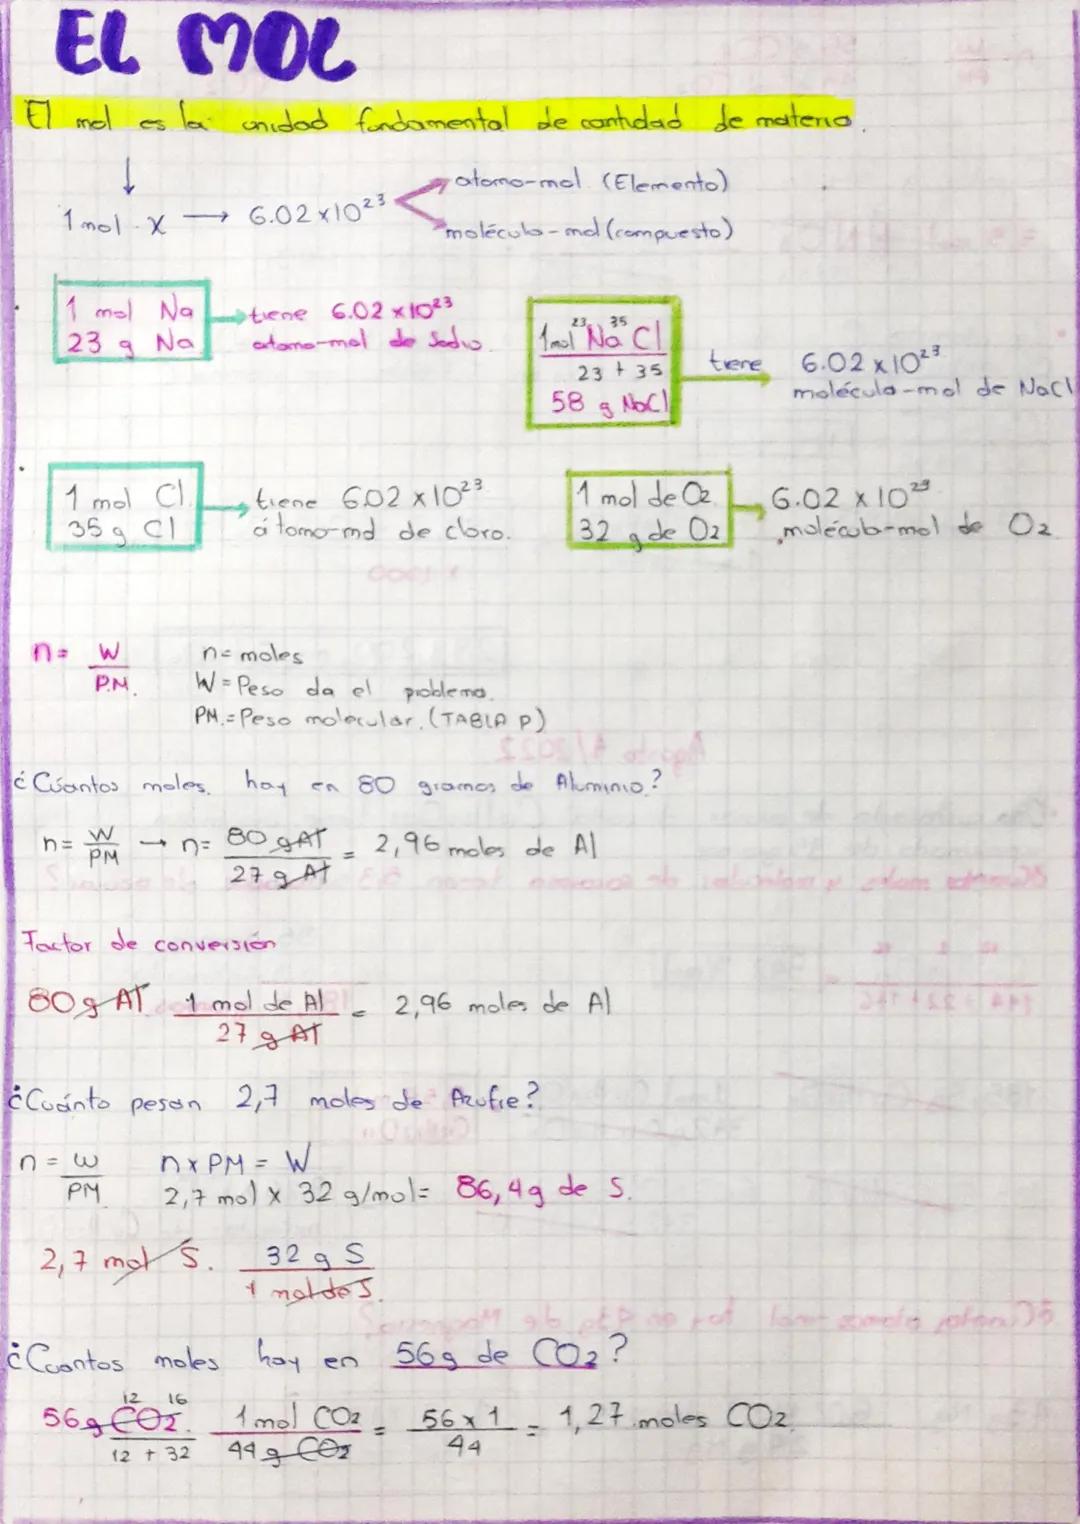 EL MOL
El mol es la unidad fundamental de cantidad de materia.
1 mol X → 6.02 x 10²³
atomo-mol (Elemento)
molécula-mol (compuesto)
1 mol Na
23 g Na
tiene 6.02 x 10²³
atomo-mol de Sodio.
1mol ²³Na ³⁵Cl
23 + 35
58 g NaCl
tiene 6.02 x 10²³
molécula-mol de NaCl
1 mol Cl.
35 g Cl
tiene 6.02 x 10²³
átomo-mol de cloro.
1 mol de O₂
32 g de O₂
6.02 x 10²³
molécula-mol de O₂
n = W
P.M.
n = moles
W = Peso da el problema.
PM. = Peso molecular. (TABLA P)
¿Cúantos moles. hay en 80 gramos de Aluminio?
n = W/PM → n = 80 g Al / 27 g Al = 2,96 moles de Al
Factor de conversión
80 g Al 1 mol de Al / 27 g Al = 2,96 moles de Al
¿Cuánto pesan 2,7 moles de Azufre?
n = W n x PM = W
PM. 2,7 mol x 32 g/mol = 86,4g de S.
2,7 mol S. 32 g S
1 mol de S.
¿Cuantos moles hay en 56g de CO₂?
12 16
56 g CO₂. 1 mol CO₂ = 56 x 1 = 1,27 moles CO₂.
12 + 32 44 g CO₂ 44